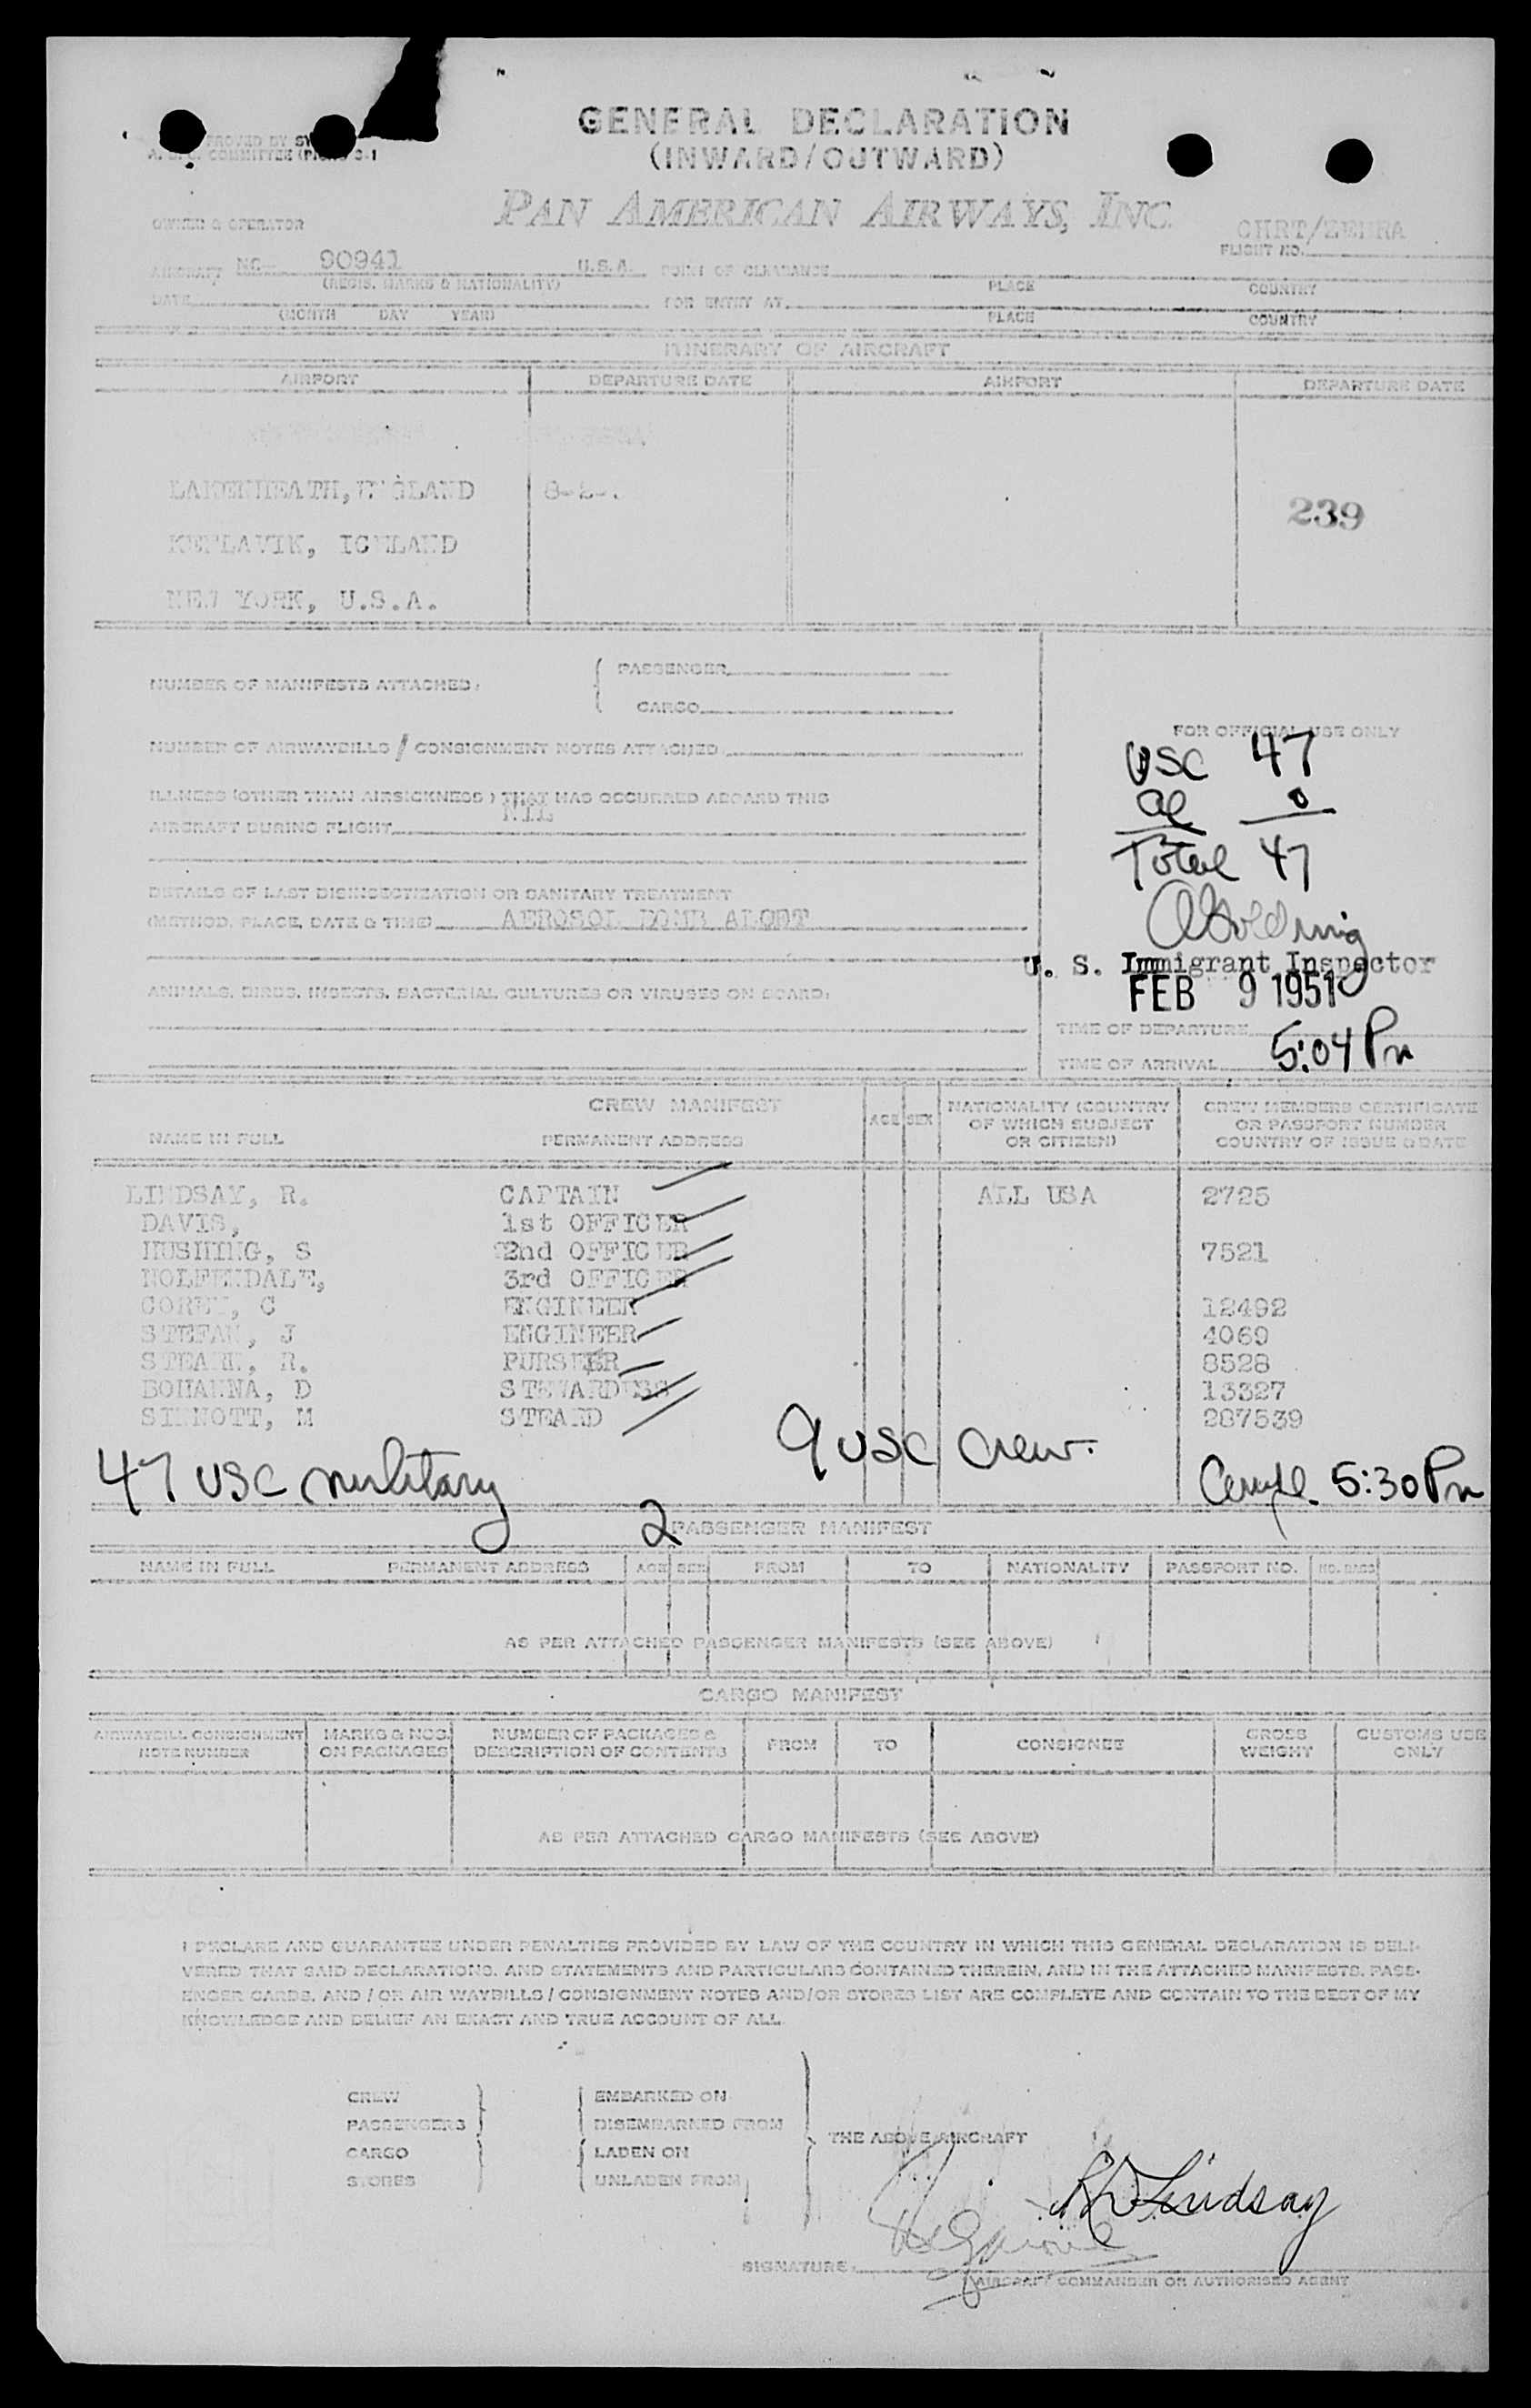 GENERAL DECLARATION
(INWARD/OUTWARD)
PAN AMERICAN AIRWAYS, INC.
OWNER & OPERATOR
CHRT/ZEBRA
FLIGHT NO.
AIRCRAFT NC- 90941 U.S.A. POINT OF CLEARANCE
(REGIS. MARKS & NATIONALITY) PLACE COUNTRY
DATE FOR ENTRY AT
(MONTH DAY YEAR) PLACE COUNTRY
ITINERARY OF AIRCRAFT
AIRPORT DEPARTURE DATE AIRPORT DEPARTURE DATE
LAKENHEATH, ENGLAND
239
KEFLAVIK, ICELAND
NEW YORK, U.S.A.
NUMBER OF MANIFESTS ATTACHED: PASSENGER
CARGO
FOR OFFICIAL USE ONLY
NUMBER OF AIRWAYBILLS / CONSIGNMENT NOTES ATTACHED
USC 47
ILLNESS (OTHER THAN AIRSICKNESS) THAT HAS OCCURRED ABOARD THIS
al 0
AIRCRAFT DURING FLIGHT NIL
Total 47
DETAILS OF LAST DISINSECTIZATION OR SANITARY TREATMENT
(METHOD, PLACE, DATE & TIME) AEROSOL BOMB ALOFT
U. S. Immigrant Inspector
ANIMALS, BIRDS, INSECTS, BACTERIAL CULTURES OR VIRUSES ON BOARD:
FEB 9 1951
TIME OF DEPARTURE
TIME OF ARRIVAL 5:04 Pm
CREW MANIFEST
NAME IN FULL PERMANENT ADDRESS AGE SEX NATIONALITY (COUNTRY OF WHICH SUBJECT OR CITIZEN) CREW MEMBERS CERTIFICATE OR PASSPORT NUMBER COUNTRY OF ISSUE & DATE
LINDSAY, R. CAPTAIN ALL USA 2725
DAVIS, 1st OFFICER
HUSHING, S 2nd OFFICER 7521
3rd OFFICER
C ENGINEER 12492
STEFAN, J ENGINEER 4069
R. PURSER 8528
BOHANNA, D STEWARDESS 13327
SINNOTT, M STEARD 287539
9 USC Crew.
47 USC military
5:30 Pm
2
PASSENGER MANIFEST
NAME IN FULL PERMANENT ADDRESS AGE SEX FROM TO NATIONALITY PASSPORT NO. NO. BAGS
AS PER ATTACHED PASSENGER MANIFESTS (SEE ABOVE)
CARGO MANIFEST
AIRWAYBILL CONSIGNMENT NOTE NUMBER MARKS & NOS. ON PACKAGES NUMBER OF PACKAGES & DESCRIPTION OF CONTENTS FROM TO CONSIGNEE GROSS WEIGHT CUSTOMS USE ONLY
AS PER ATTACHED CARGO MANIFESTS (SEE ABOVE)
I DECLARE AND GUARANTEE UNDER PENALTIES PROVIDED BY LAW OF THE COUNTRY IN WHICH THIS GENERAL DECLARATION IS DELI-
VERED THAT SAID DECLARATIONS, AND STATEMENTS AND PARTICULARS CONTAINED THEREIN, AND IN THE ATTACHED MANIFESTS, PASS-
ENGER CARDS, AND / OR AIR WAYBILLS / CONSIGNMENT NOTES AND/OR STORES LIST ARE COMPLETE AND CONTAIN TO THE BEST OF MY
KNOWLEDGE AND BELIEF AN EXACT AND TRUE ACCOUNT OF ALL.
CREW EMBARKED ON
PASSENGERS DISEMBARKED FROM
THE ABOVE AIRCRAFT
CARGO LADEN ON
STORES UNLADEN FROM
R D Lindsay
SIGNATURE:
AIRCRAFT COMMANDER OR AUTHORISED AGENT